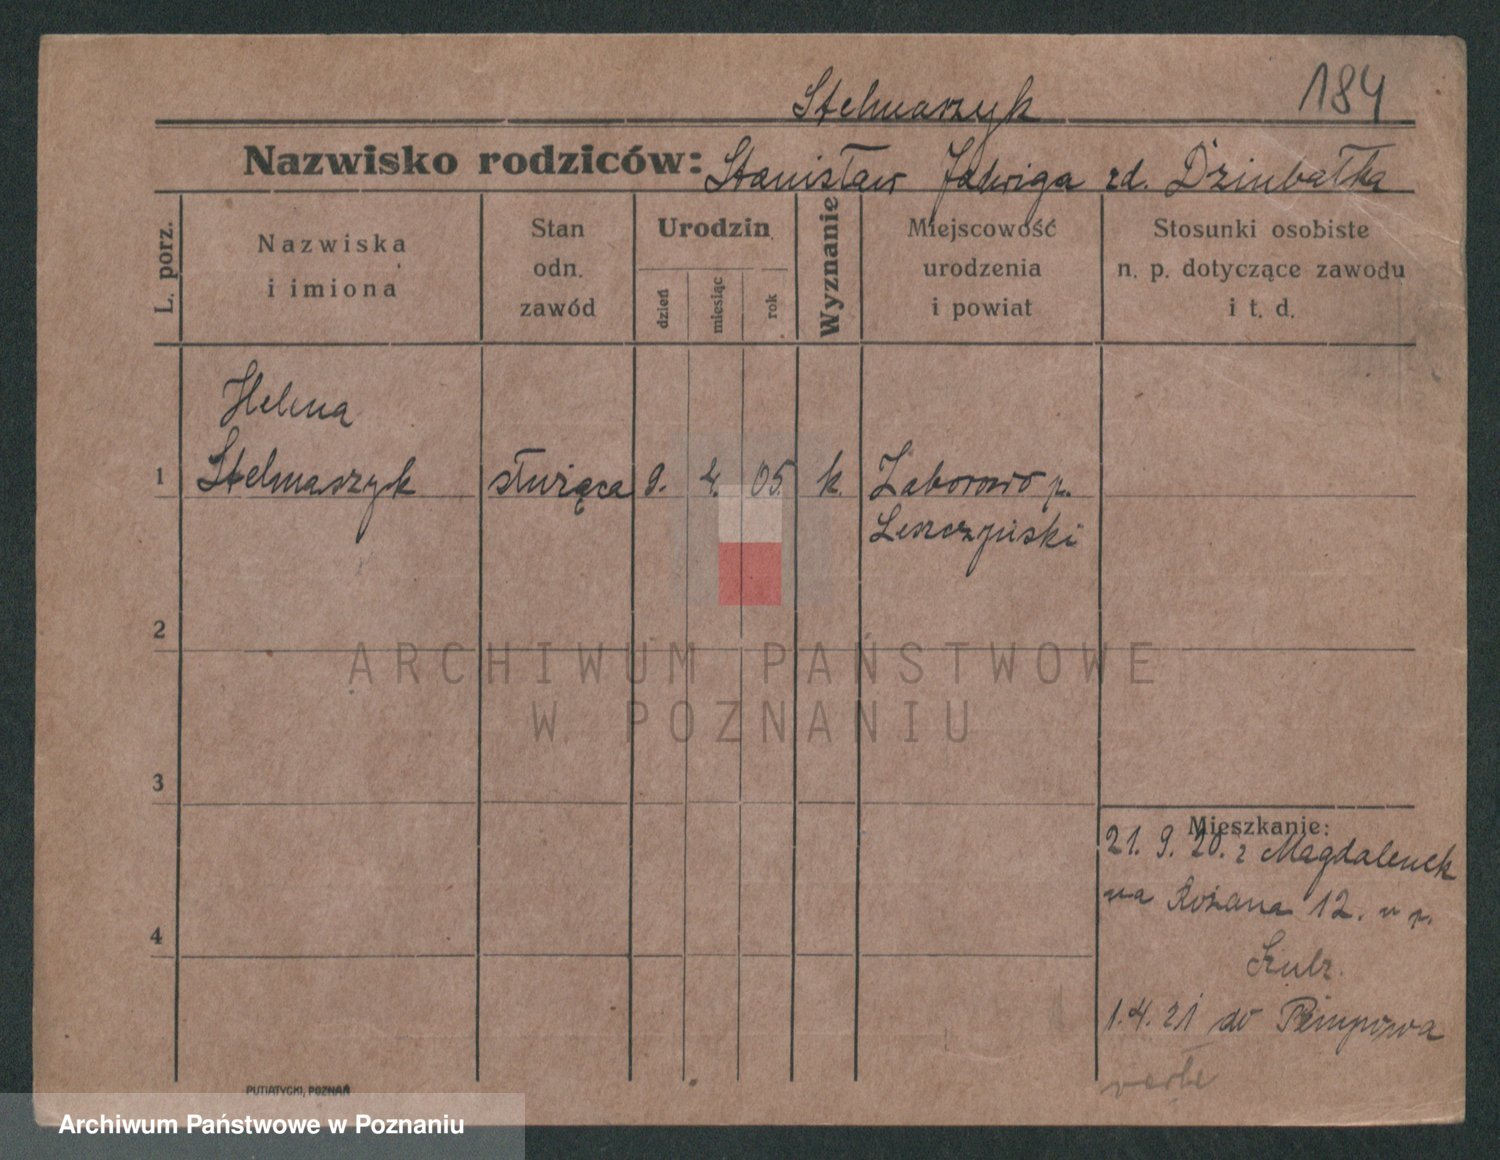 184
Stelmaszyk
Nazwisko rodziców: Stanisław Jadwiga zd. Dziubałka
L. porz.
Nazwiska
i imiona
Stan
odn.
zawód
Urodzin
dzień
miesiąc
rok
Wyznanie
Miejscowość
urodzenia
i powiat
Stosunki osobiste
n. p. dotyczące zawodu
i t. d.
Helena
1 Stelmaszyk służąca 9. 4. 05. k. Zaborowo p.
Leszczyński
2
ARCHIWUM PAŃSTWOWE
W POZNANIU
3
Mieszkanie:
21. 9. 20. z Magdalenek
na Różana 12. u p.
Szulz.
1. 4. 21 do Pempowa
verte
4
PUTIATYCKI, POZNAŃ
Archiwum Państwowe w Poznaniu